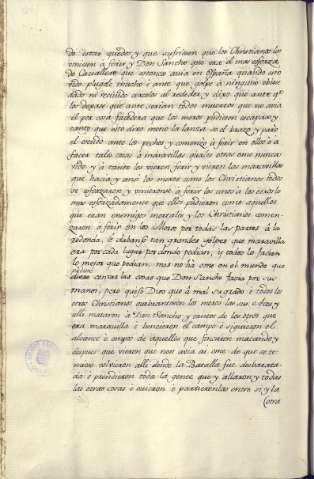 de estar quedos, y que sufriesen que los Christianos los
viniesen a ferir, y Don Sancho que era el mas esforza
do Cavallero que estonce avia en España quando oyo
todo plegole mucho e ante que golpe a ninguno obiese
dado ni recibido arostó al rededor, y dixo que ante que
los dexase que ante serian todos muertos que no avia
el por cosa fazedera que los moros pudiesen escapar, y
tanto que esto dixo metio la lanza so el brazo, y puso
el escudo ante los pechos, y comenzo a ferir en ellos e a
facer tales cosas a maravillas que de otro ome nunca
vido, y a tanto los vieron ferir, y vieron las maravillas
que hacia, y ansi los moros como los Christianos todos
se esforzaron, y vinieronse a ferir los unos a los otros lo
mas esforzadamente que ellos pudieron como aquellos
que eran enemigos mortales, y los Christianos comen-
zaron a ferir en los Moros por todas las partes a la
redonda, e dabanse tan grandes golpes que maravilla
era por cada lugar por donde podian, y todos lo facian
lo mejor que podian mas no ha ome en el mundo que
pudiese contar las cosas que Don Sancho facia por su
mano, pero quiso Dios que a mal su grado e todos los
otros Christianos
alli mataron a Don Sancho y pieza de los otros que
era maravilla e vencieron el campo e siguieron el
alcance e campo de aquellos que fincaron matando, y
despues que vieron que non avia ai uno de que se te-
miese volvieron alli donde la Batalla fue desbarata-
da e prendieron toda la gente que y allaron, y todas
las otras cosas e cogieron e partieronlas entre si, y la
Cona